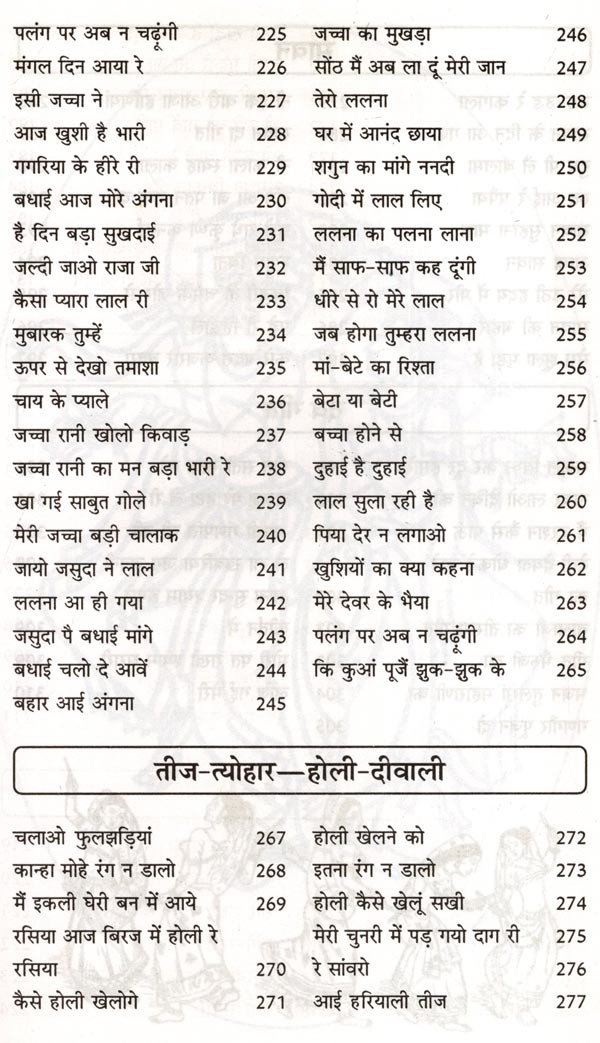 पलंग पर अब न चढ़ूंगी 225
मंगल दिन आया रे 226
इसी जच्चा ने 227
आज खुशी है भारी 228
गगरिया के हीरे री 229
बधाई आज मोरे अंगना 230
है दिन बड़ा सुखदाई 231
जल्दी जाओ राजा जी 232
कैसा प्यारा लाल री 233
मुबारक तुम्हें 234
ऊपर से देखो तमाशा 235
चाय के प्याले 236
जच्चा रानी खोलो किवाड़ 237
जच्चा रानी का मन बड़ा भारी रे 238
खा गई साबुत गोले 239
मेरी जच्चा बड़ी चालाक 240
जायो जसुदा ने लाल 241
ललना आ ही गया 242
जसुदा पै बधाई मांगे 243
बधाई चलो दे आवें 244
बहार आई अंगना 245
जच्चा का मुखड़ा 246
सोंठ मैं अब ला दूं मेरी जान 247
तेरो ललना 248
घर में आनंद छाया 249
शगुन का मांगे ननदी 250
गोदी में लाल लिए 251
ललना का पलना लाना 252
मैं साफ-साफ कह दूंगी 253
धीरे से रो मेरे लाल 254
जब होगा तुम्हरा ललना 255
मां-बेटे का रिश्ता 256
बेटा या बेटी 257
बच्चा होने से 258
दुहाई है दुहाई 259
लाल सुला रही है 260
पिया देर न लगाओ 261
खुशियों का क्या कहना 262
मेरे देवर के भैया 263
पलंग पर अब न चढ़ूंगी 264
कि कुआं पूजैं झुक-झुक के 265
तीज-त्योहार—होली-दीवाली
चलाओ फुलझड़ियां 267
कान्हा मोहे रंग न डालो 268
मैं इकली घेरी बन में आये 269
रसिया आज बिरज में होली रे
रसिया 270
कैसे होली खेलोगे 271
होली खेलने को 272
इतना रंग न डालो 273
होली कैसे खेलूं सखी 274
मेरी चुनरी में पड़ गयो दाग री 275
रे सांवरो 276
आई हरियाली तीज 277